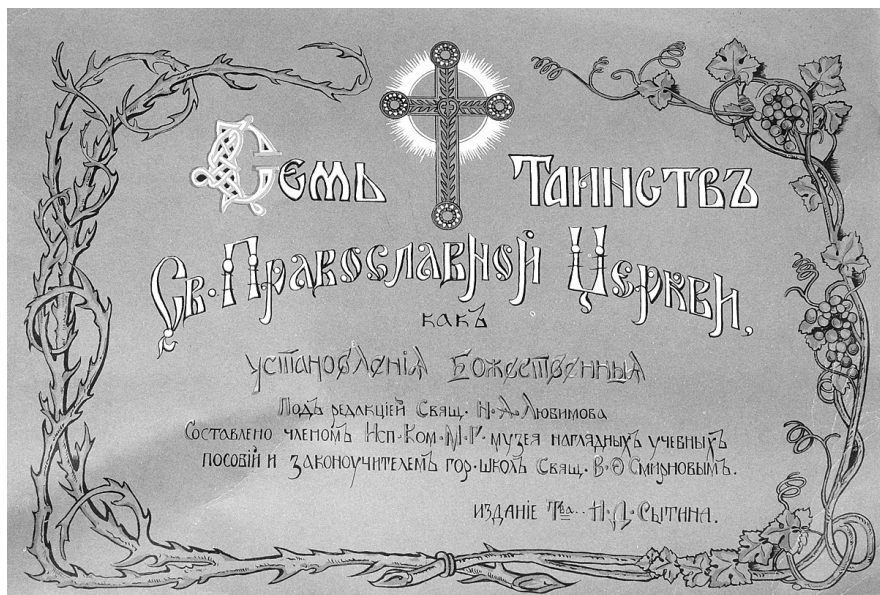 Семь Таинствъ
Св. Православной Церкви,
какъ
установленiя Божественныя
Подъ редакцiей Свящ. Н. А. Любимова
Составлено членомъ Исп. Ком. М. Г. музея наглядныхъ учебныхъ
пособiй и законоучителемъ гор. школъ Свящ. В. Ѳ Смирновымъ.
изданiе Тва.. И. Д. Сытина.